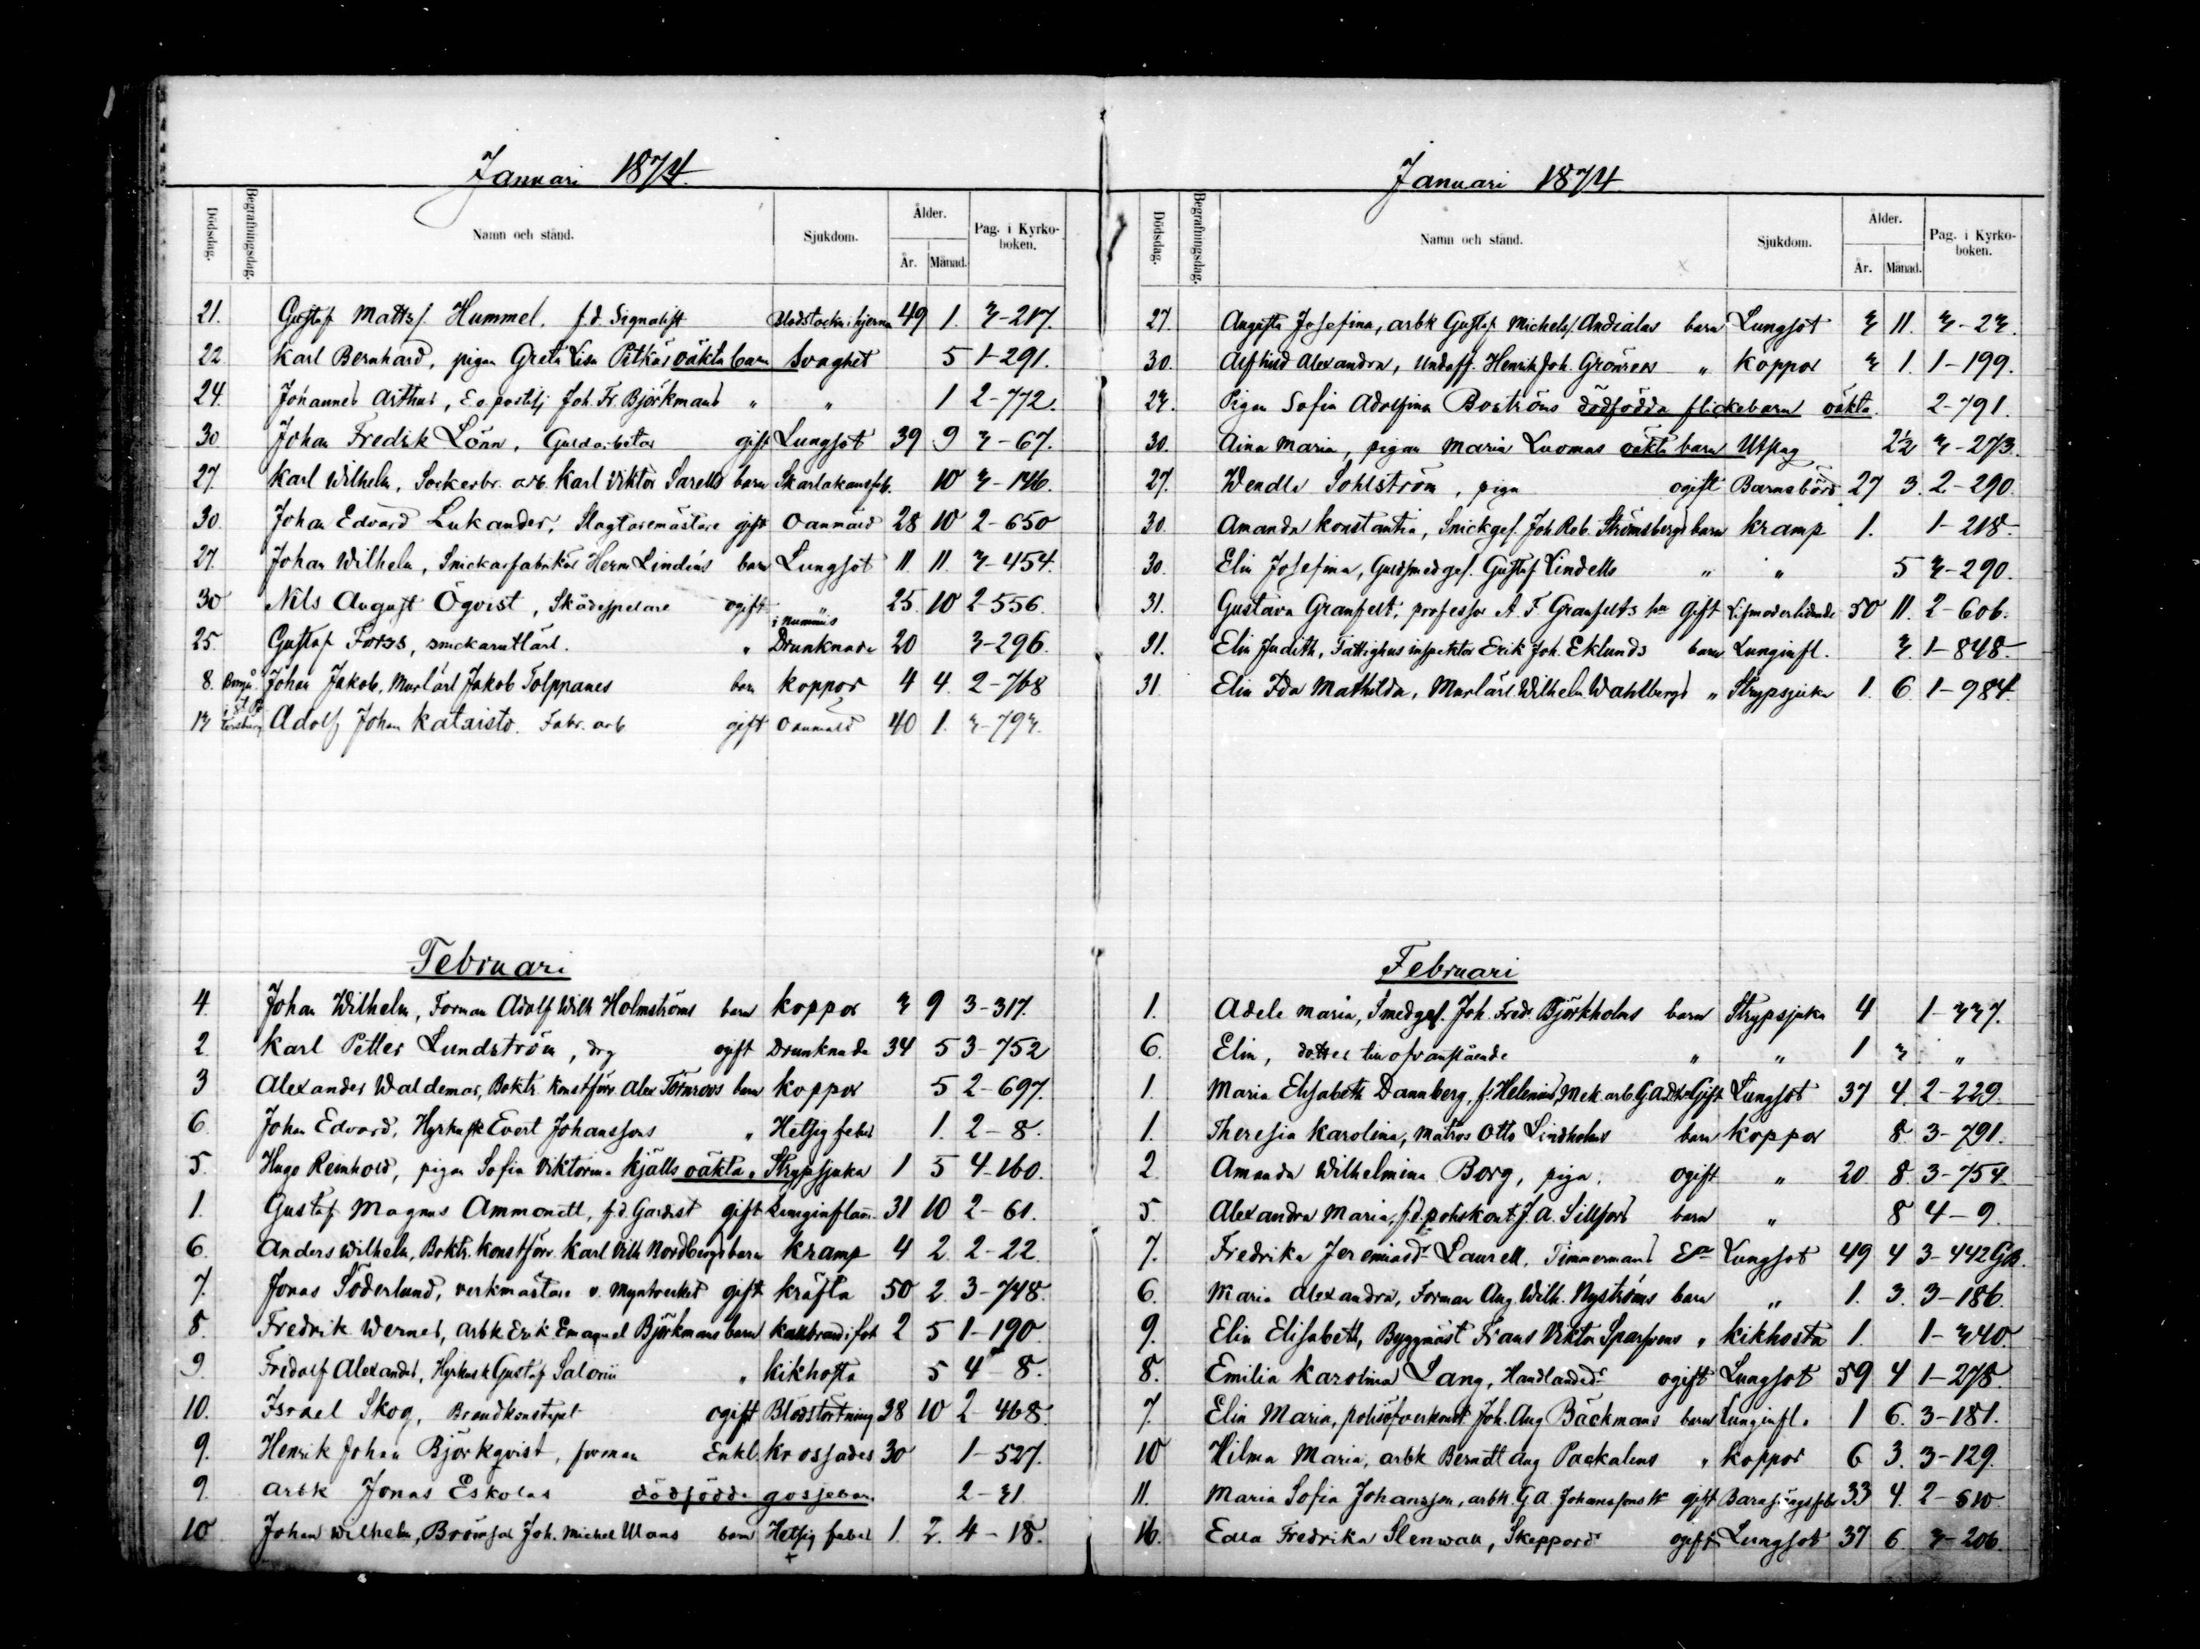 Januari 1874.
Dödsdag. Begrafningsdag. Namn och stånd. Sjukdom. Ålder. År. Månad. Pag. i Kyrkoboken.
21. Gustaf Mattss. Hummel. f.d. Signalist 49 1. 3-217.
22 Karl Bernhard, pigan Greta Lisa Pitkäs oäkta barn Svaghet 5 1-291.
24. Johannes Arthur, E.o. postilj Joh. Fr. Björkmans " " 1 2-772.
30 Johan Fredrik Lönn, Guldarbetar gift Lungsot 39 9 3-67.
27. Karl Wilhelm, Sockerbr. arb. Karl Viktor Sarells barn Skarlakansfeb. 10 3-146.
30. Johan Edvard Lukander, Slagtaremästare gift Oanmäld 28 10 2-650
27. Johan Wilhelm, Snickarfabrikör Herm Lindéns barn Lungsot 11 11. 3-454.
30 Nils August Öqvist, Skådespelare ogift 25. 10 2-556.
25. Gustaf Forss, snickareutlärl. " i Nummis Drunknade 20 3-296.
8. Borgå Johan Jakob, Murlärl Jakob Tolppanes barn Koppor 4 4. 2-768
13 Adolf Johan Kataisto. Fabr. arb gift Oanmäld 40 1. 3-793.
Februari
4. Johan Wilhelm, Forman Adolf Wilh Holmströms barn Koppor 3 9 3-317.
2. Karl Petter Lundström, drg ogift Drunknade 34 5 3-752
3 Alexander Waldemar, Boktr. Konstförv. Alex Törnroos barn Koppor 5 2-697.
6. Johan Edvard, Hyrkusk Evert Johanssons " Hetsig feber 1. 2-8.
5. Hugo Reinhold, pigan Sofia Viktorina Kjälls oäkta " Strypsjuka 1 5 4-160.
1. Gustaf Magnus Ammondt, f.d. Gardist gift Lunginflam. 31 10 2-61.
6. Anders Wilhelm, Boktr. Konstförv. Karl Vilh Nordbergs barn Kramp 4 2. 2-22.
7. Jonas Söderlund, verkmästare v. Myntverket gift Kräfta 50 2. 3-748.
8. Fredrik Werner, arbk Erik Emanuel Björkmans barn Kallbrand i fot 2 5 1-190.
9. Fridolf Alexander, Hyrkusk Gustaf Salonii " Kikhosta 5 4-8.
10. Israel Skog, Brandkonstapel ogift Blodstörtning 38 10 2-468.
9. Henrik Johan Björkqvist, forman Enkl. Krossades 30 1-527.
9. Arbk Jonas Eskolas dödfödda gossebarn. 2-31
10 Johan Wilhelm, Joh. Michel Ulans barn Hetsig feber 1. 2. 4-18.
Januari 1874
Dödsdag. Begrafningsdag. Namn och stånd. Sjukdom. Ålder. År. Månad. Pag. i Kyrkoboken.
27. Augusta Josefina, arbk Gustaf Michelss. Andialas barn Lungsot 3 11. 3-23.
30. Alfhild Alexandra, Undoff. Henrik Joh. Grönroos " Koppor 3 1. 1-199.
23. Pigan Sofia Adolfina Boströms dödfödda flickebarn oäkta. 2-791.
30. Aina Maria, pigan Maria Luomas oäkta barn Utslag 2½ 3-273.
27. Wendla Sohlström, piga ogift Barnsbörd 27 3. 2-290.
30. Amanda Konstantia, Snickges. Joh Rob. Strömsbergs barn Kramp 1. 1-218.
30. Elin Josefina, Guldsmedges. Gustaf Lindells " " 5 3-290.
31. Gustava Granfelt, professor A. F. Granfelts hu Gift Lifmoderlidande 50 11. 2-606.
31. Elin Judith, Fattighusinspektor Erik Joh. Eklunds barn Lunginfl. 3. 1-848.
31. Elin Ida Mathilda, Murlärl. Wilhelm Wahlbergs " Strypsjuka 1. 6. 1-984.
Februari
1. Adele Maria, Smedges. Joh. Fred. Björkholms barn Strypsjuka 4 1-337.
6. Elin, dotter till ofvanstående " " 1 3 "
1. Maria Elisabeth Dannberg, f. Helenius, Mek. arb. G.A.D. Gift Lungsot 37 4. 2-229.
1. Theresia Karolina, Matros Otto Lindholms barn Koppor 8. 3-791.
2. Amanda Wilhelmina Borg, piga. ogift " 20 8. 3-754.
5. Alexandra Maria, f.d. poliskonst. J. A. Sillfors barn " 8 4-9.
7. Fredrika Jeremiasdr Laurell, Timmermans Eka Lungsot 49 4 3-442 GB.
6. Maria Alexandra, Forman Aug. Wilh. Nyströms barn " 1. 3. 3-186.
9. Elin Elisabeth, Byggmäst Frans Viktor Sparfvens " Kikhosta 1. 1-340.
8. Emilia Karolina Lang, Handlandedr ogift Lungsot 59 4 1-278.
7. Elin Maria, polisöfverkonst Joh. Aug Bäckmans barn Lunginfl. 1 6. 3-181.
10 Hilma Maria, arbk Berndt Aug Packalens " Koppor 6 3. 3-129.
11. Maria Sofia Johansson, arbk. G. A. Johanssons h. gift Barnsängsfeber 33 4. 2-510.
16. Edla Fredrika Stenwall, Skeppardr ogift Lungsot 37 6. 3-206.